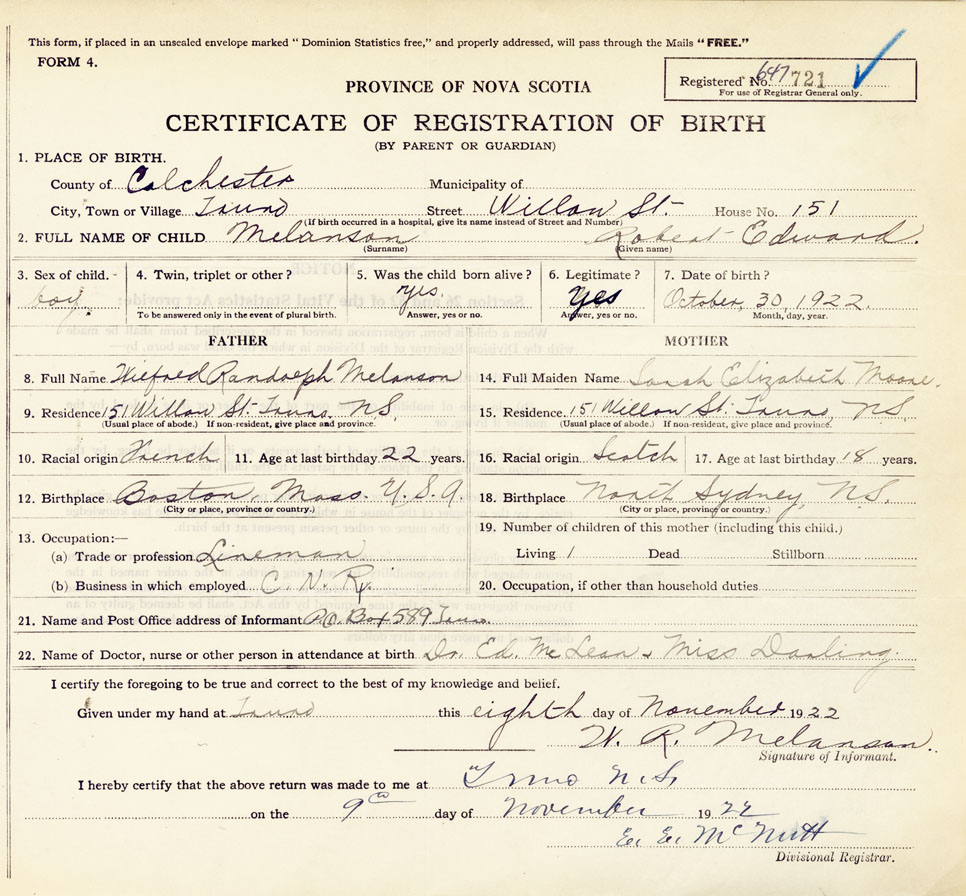 This form, if placed in an unsealed envelope marked "Dominion Statistics free," and properly addressed, will pass through the Mails "FREE."
FORM 4.
Registered No. 647 721
For use of Registrar General only.
PROVINCE OF NOVA SCOTIA
CERTIFICATE OF REGISTRATION OF BIRTH
(BY PARENT OR GUARDIAN)
1. PLACE OF BIRTH.
County of Colchester Municipality of
City, Town or Village Truro Street Willow St. House No. 151
(If birth occurred in a hospital, give its name instead of Street and Number)
2. FULL NAME OF CHILD Melanson Robert Edward.
(Surname) (Given name)
3. Sex of child. - 4. Twin, triplet or other? 5. Was the child born alive? 6. Legitimate? 7. Date of birth?
boy yes. Yes October, 30, 1922.
To be answered only in the event of plural birth. Answer, yes or no. Answer, yes or no. Month, day, year.
FATHER MOTHER
8. Full Name Wilfred Randolph Melanson 14. Full Maiden Name Sarah Elizabeth Moore.
9. Residence 151 Willow St. Truro, N.S. 15. Residence. 151 Willow St. Truro, N.S.
(Usual place of abode.) If non-resident, give place and province. (Usual place of abode.) If non-resident, give place and province.
10. Racial origin French 11. Age at last birthday 22 years. 16. Racial origin Scotch 17. Age at last birthday 18 years.
12. Birthplace Boston, Mass. U.S.A. 18. Birthplace North Sydney, N.S.
(City or place, province or country.) (City or place, province or country.)
13. Occupation:— 19. Number of children of this mother (including this child.)
(a) Trade or profession Lineman Living 1 Dead Stillborn
(b) Business in which employed C. N. Ry. 20. Occupation, if other than household duties
21. Name and Post Office address of Informant P.O. Box 589 Truro.
22. Name of Doctor, nurse or other person in attendance at birth Dr. Ed. McLean & Miss Darling.
I certify the foregoing to be true and correct to the best of my knowledge and belief.
Given under my hand at Truro this eighth day of November 1922
W. R. Melanson.
Signature of Informant.
I hereby certify that the above return was made to me at Truro N.S.
on the 9th day of November 1922
E. E. McNutt
Divisional Registrar.